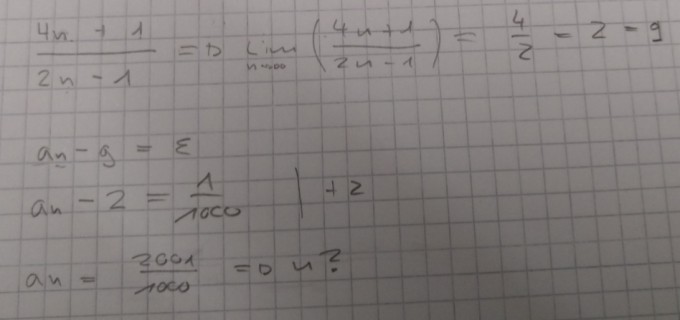 (4n + 1)/(2n - 1) => lim n→∞ ((4n+1)/(2n-1)) = 4/2 = 2 = g
an - g = ε
an - 2 = 1/1000 | +2
an = 2001/1000 => n?